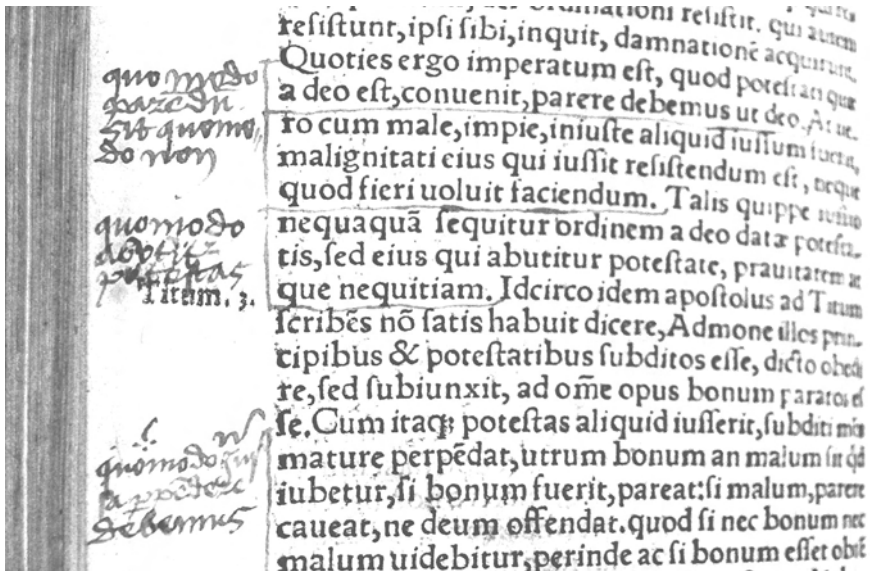 ordinationi resistit. qui autem
resistunt, ipsi sibi, inquit, damnationē acquirunt.
Quoties ergo imperatum est, quod potestati quæ
a deo est, conuenit, parere debemus ut deo. At ue-
ro cum male, impie, iniuste aliquid iussum fuerit,
malignitati eius qui iussit resistendum est, neque
quod fieri uoluit faciendum. Talis quippe iussio
nequaquā sequitur ordinem a deo datæ potesta-
tis, sed eius qui abutitur potestate, prauitatem at
que nequitiam. Idcirco idem apostolus ad Titum
scribēs nō satis habuit dicere, Admone illos prin-
cipibus & potestatibus subditos esse, dicto obedi
re, sed subiunxit, ad om̄e opus bonum paratos es
se. Cum itaq; potestas aliquid iusserit, subditi
mature perpēdat, utrum bonum an malum sit qd
iubetur, si bonum fuerit, pareat: si malum, parere
caueat, ne deum offendat. quod si nec bonum nec
malum uidebitur, perinde ac si bonum esset
quo modo
parēdū
sit quomo
do non
quomodo
potestas
Titum. 3.
quomodo
debemus